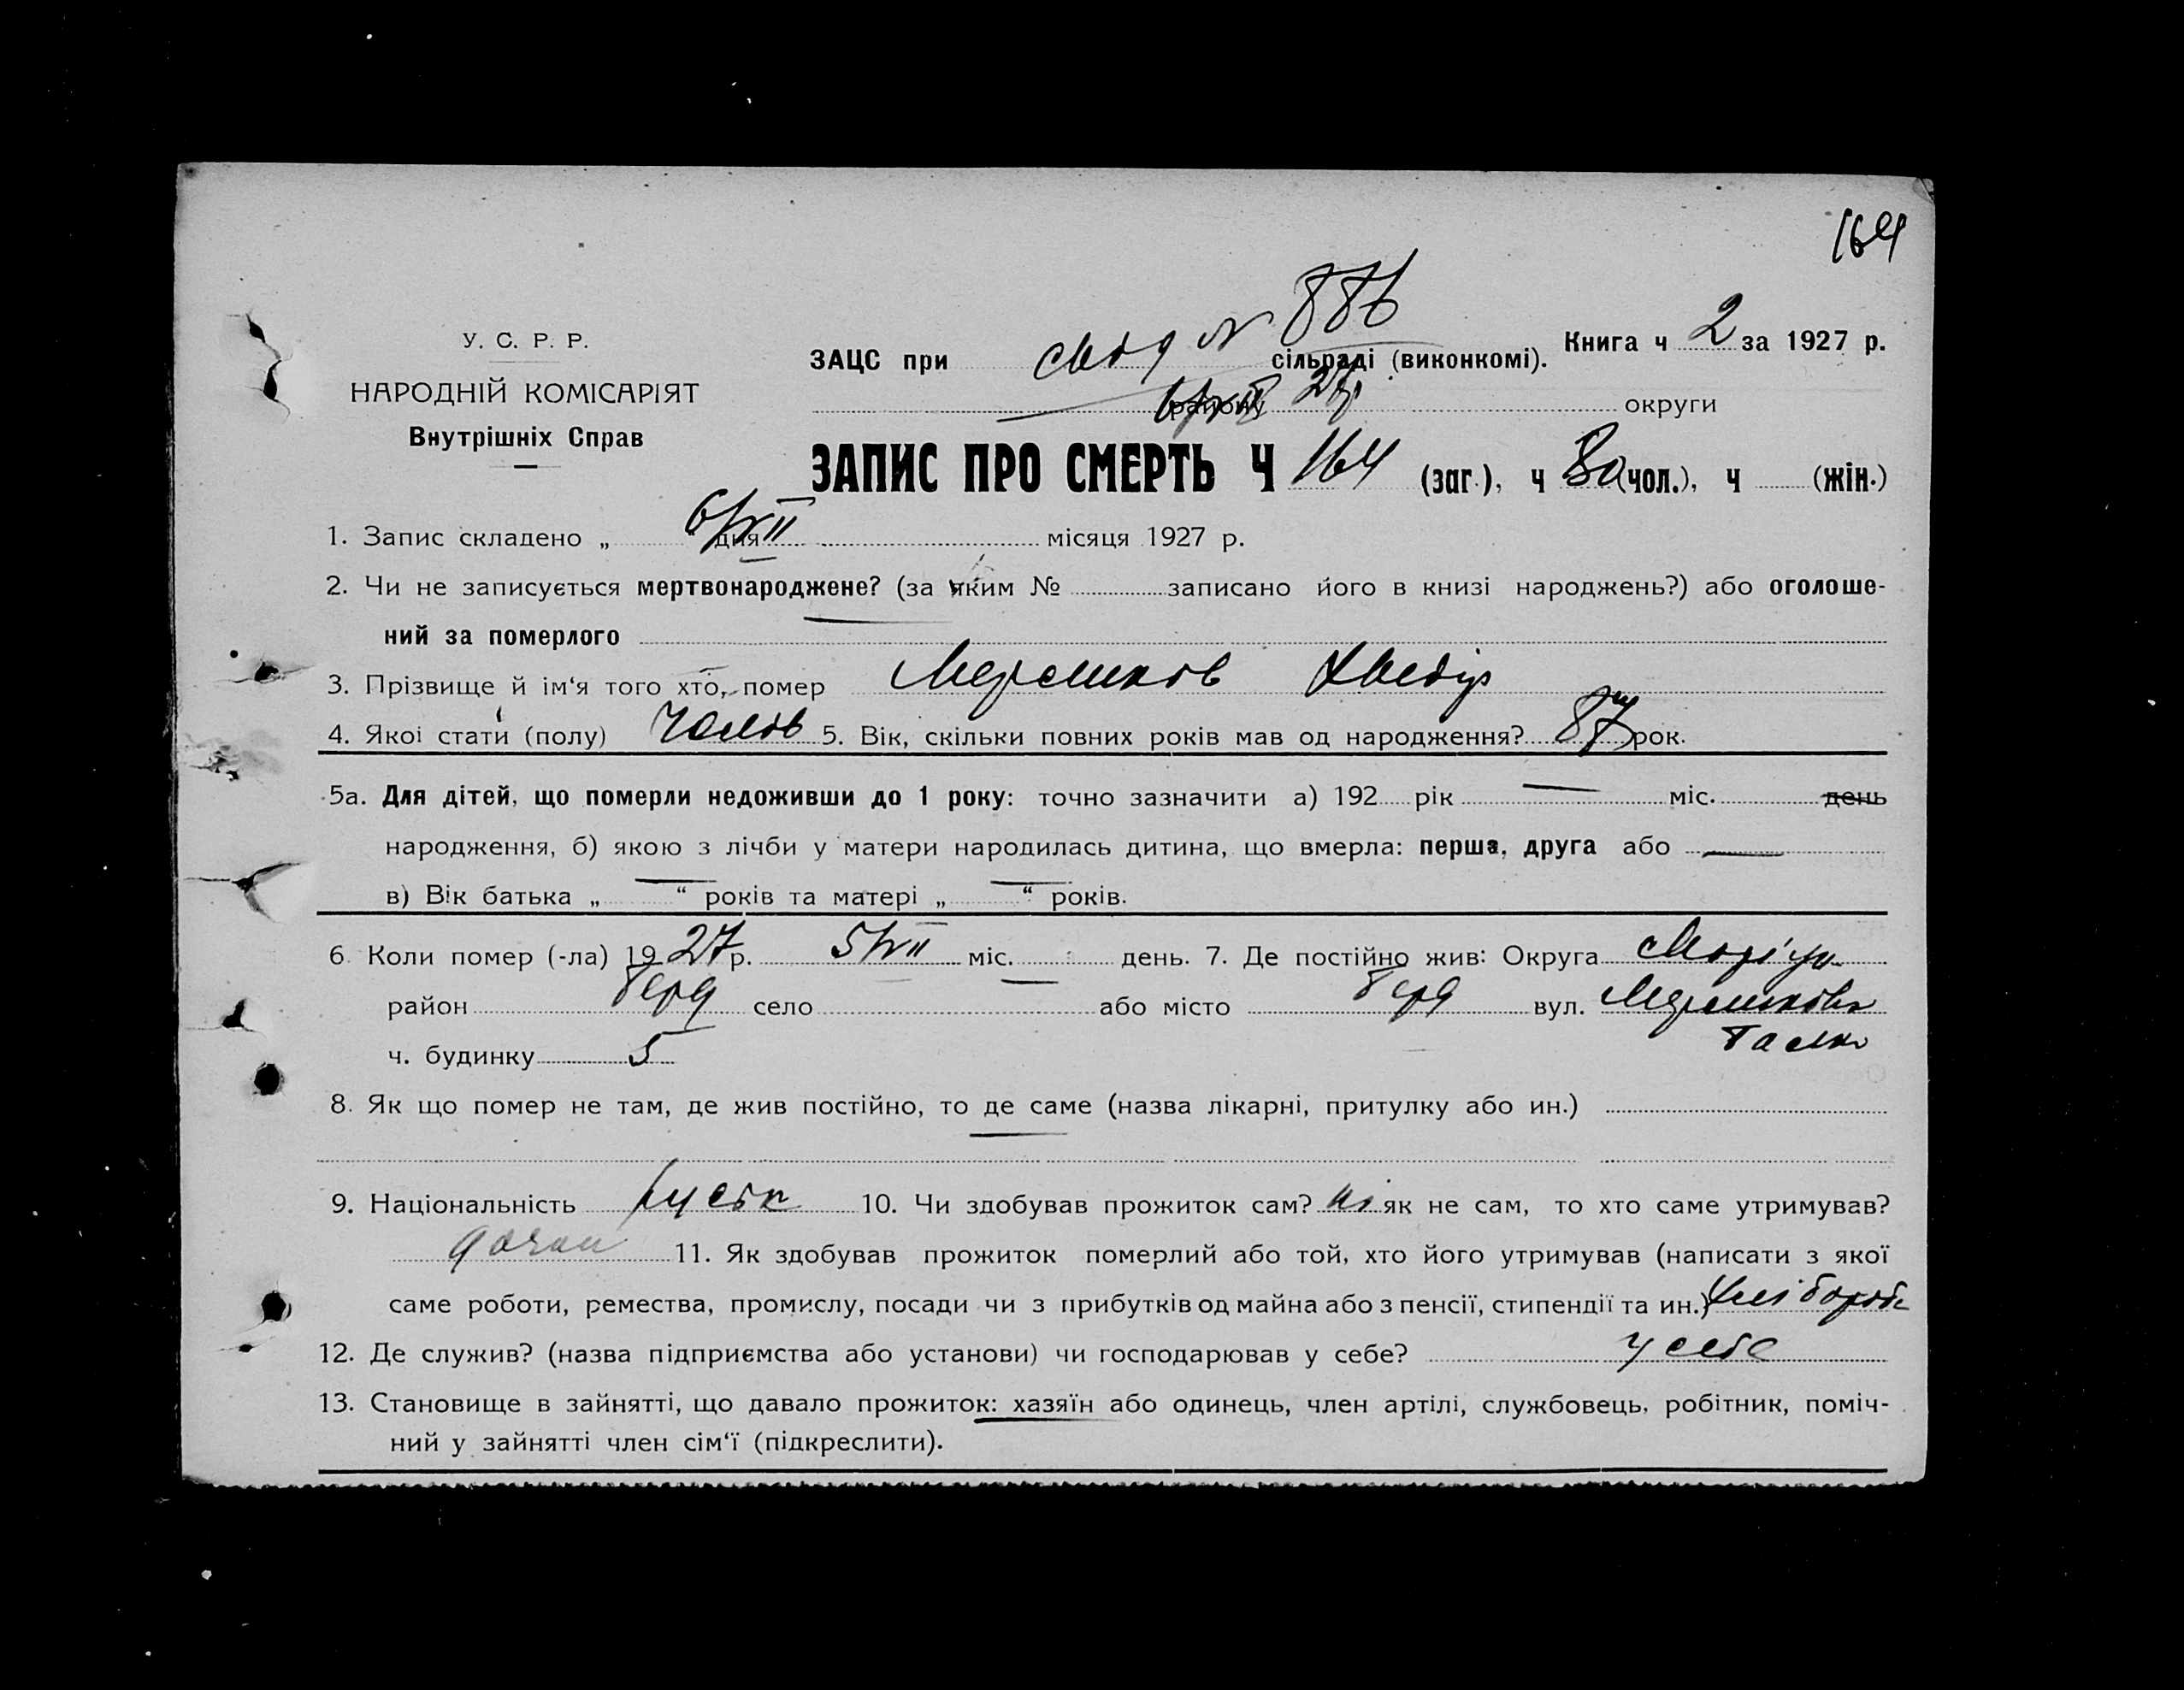 164
№ 886
У. С. Р. Р.
НАРОДНІЙ КОМІСАРІЯТ
Внутрішніх Справ
Книга ч 2 за 1927 р.
ЗАЦС при сільраді (виконкомі).
району округи
ЗАПИС ПРО СМЕРТЬ Ч 164 (заг.), ч 80 (чол.), ч (жін.)
1. Запис складено „ 6/XII дня місяця 1927 р.
2. Чи не записується мертвонароджене? (за яким № записано його в книзі народжень?) або оголоше-
ний за померлого
3. Прізвище й ім'я того хто, помер Мерешков Хведір
4. Якої статі (полу) чолов 5. Вік, скільки повних років мав од народження? 87 рок.
5а. Для дітей, що померли недоживши до 1 року: точно зазначити а) 192 рік — міс. день
народження, б) якою з лічби у матери народилась дитина, що вмерла: перша, друга або —
в) Вік батька „ — “ років та матері „ — “ років.
6. Коли помер (-ла) 1927 р. 5/XII міс. день. 7. Де постійно жив: Округа Маріуп
район Берд село або місто Берд вул.
балка
ч. будинку 5
8. Як що помер не там, де жив постійно, то де саме (назва лікарні, притулку або ин.)
9. Національність руськ 10. Чи здобував прожиток сам? ні як не сам, то хто саме утримував?
дочки 11. Як здобував прожиток померлий або той, хто його утримував (написати з якої
саме роботи, ремества, промислу, посади чи з прибутків од майна або з пенсії, стипендії та ин.) хлібороб
12. Де служив? (назва підприємства або установи) чи господарював у себе? у себе
13. Становище в зайнятті, що давало прожиток: хазяїн або одинець, член артілі, службовець, робітник, поміч-
ний у зайнятті член сім'ї (підкреслити).